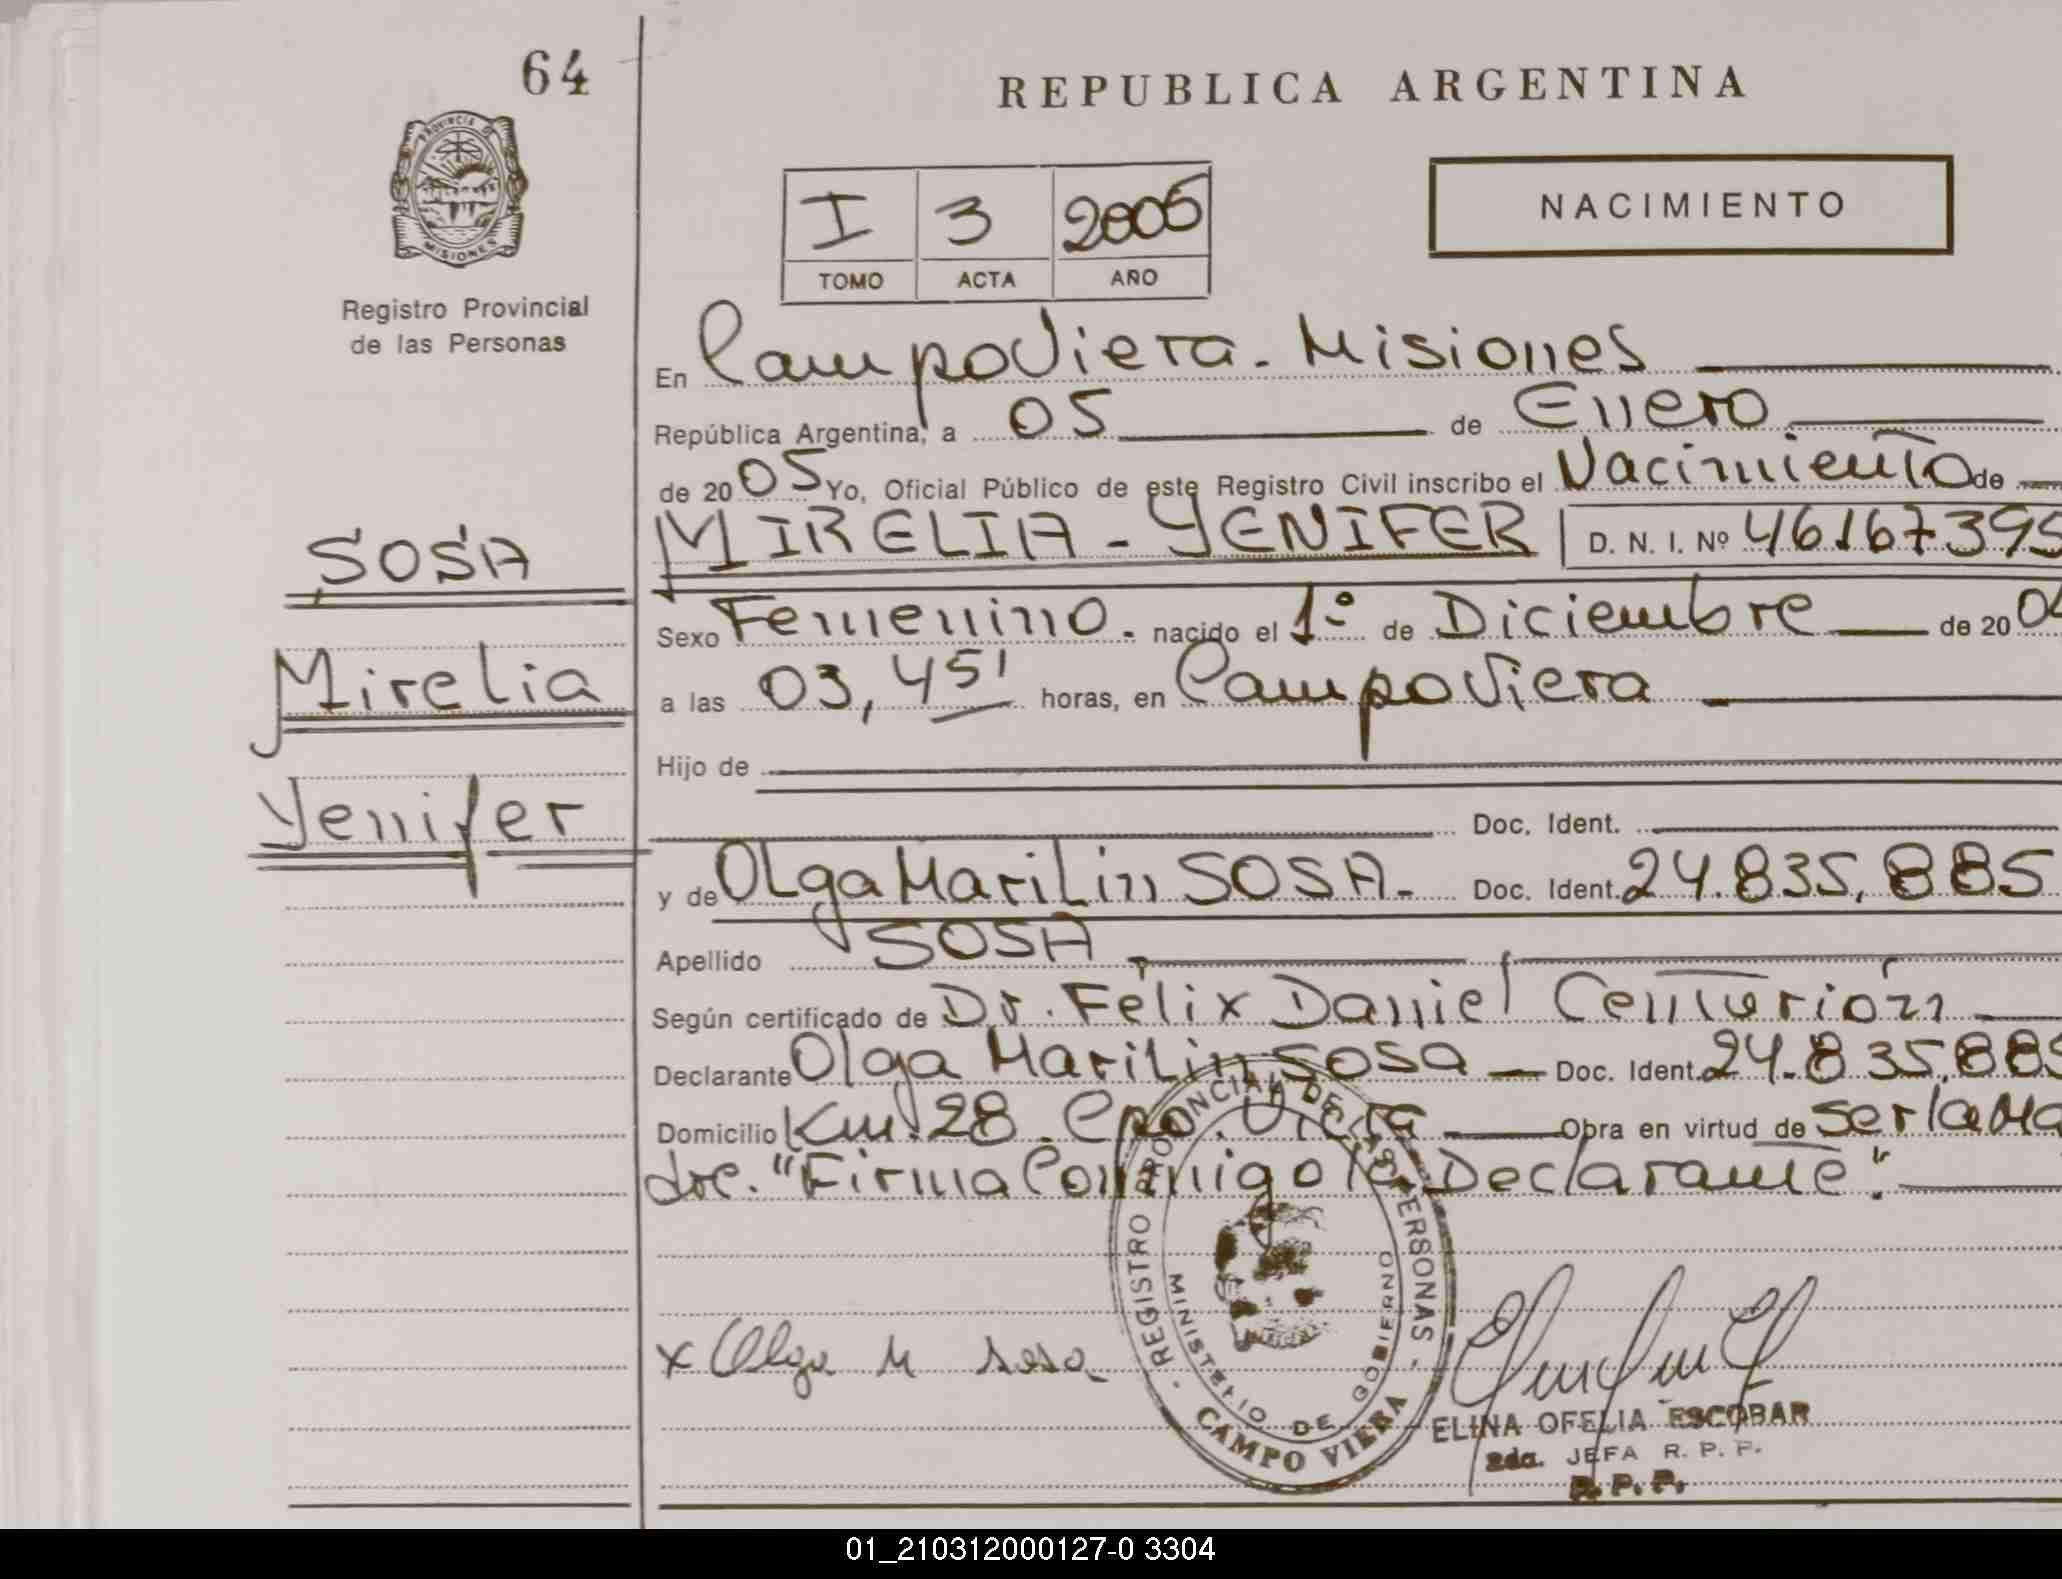 64
REPUBLICA ARGENTINA
PROVINCIA DE
MISIONES
Registro Provincial
de las Personas
I 3 2005
TOMO ACTA AÑO
NACIMIENTO
En Campo Viera - Misiones
República Argentina, a 05 de Enero
de 2005 Yo, Oficial Público de este Registro Civil inscribo el Nacimiento de
MIRELIA - YENIFER D. N. I. Nº 4616739
SOSA
Mirelia
Yenifer
Sexo Femenino. nacido el 1º de Diciembre de 200
a las 03,45' horas, en Campo Viera
Hijo de
Doc. Ident.
y de Olga Marilin SOSA. Doc. Ident. 24.835.885
Apellido SOSA
Según certificado de Dr. Félix Daniel Centurión
Declarante Olga Marilin Sosa Doc. Ident. 24.835.885
Domicilio Km. 28. Cpo. Viera Obra en virtud de ser la Ma
dre. "Firma Conmigo la Declarante".
REGISTRO PROVINCIAL DE LAS PERSONAS
MINISTERIO DE GOBIERNO
CAMPO VIERA
x Olga M Sosa
ELINA OFELIA ESCOBAR
2da. JEFA R. P. P.
R. P. P.
01_210312000127-0 3304